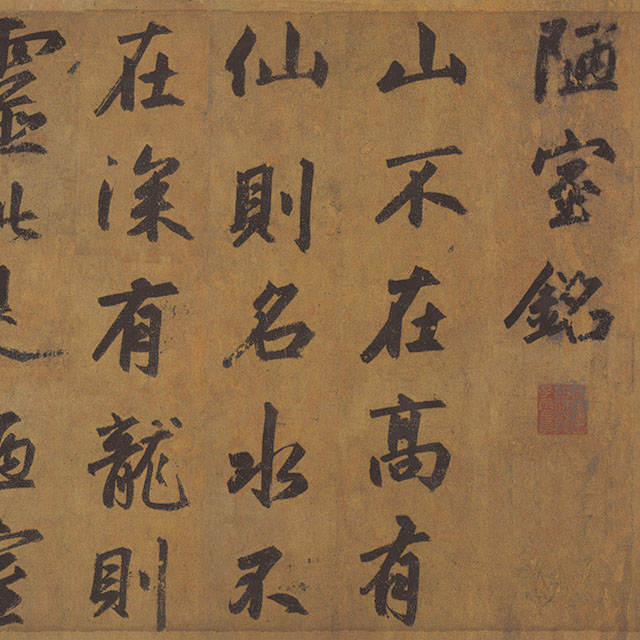 陋室銘
山不在高有
仙則名水不
在深有龍則
靈此是陋室